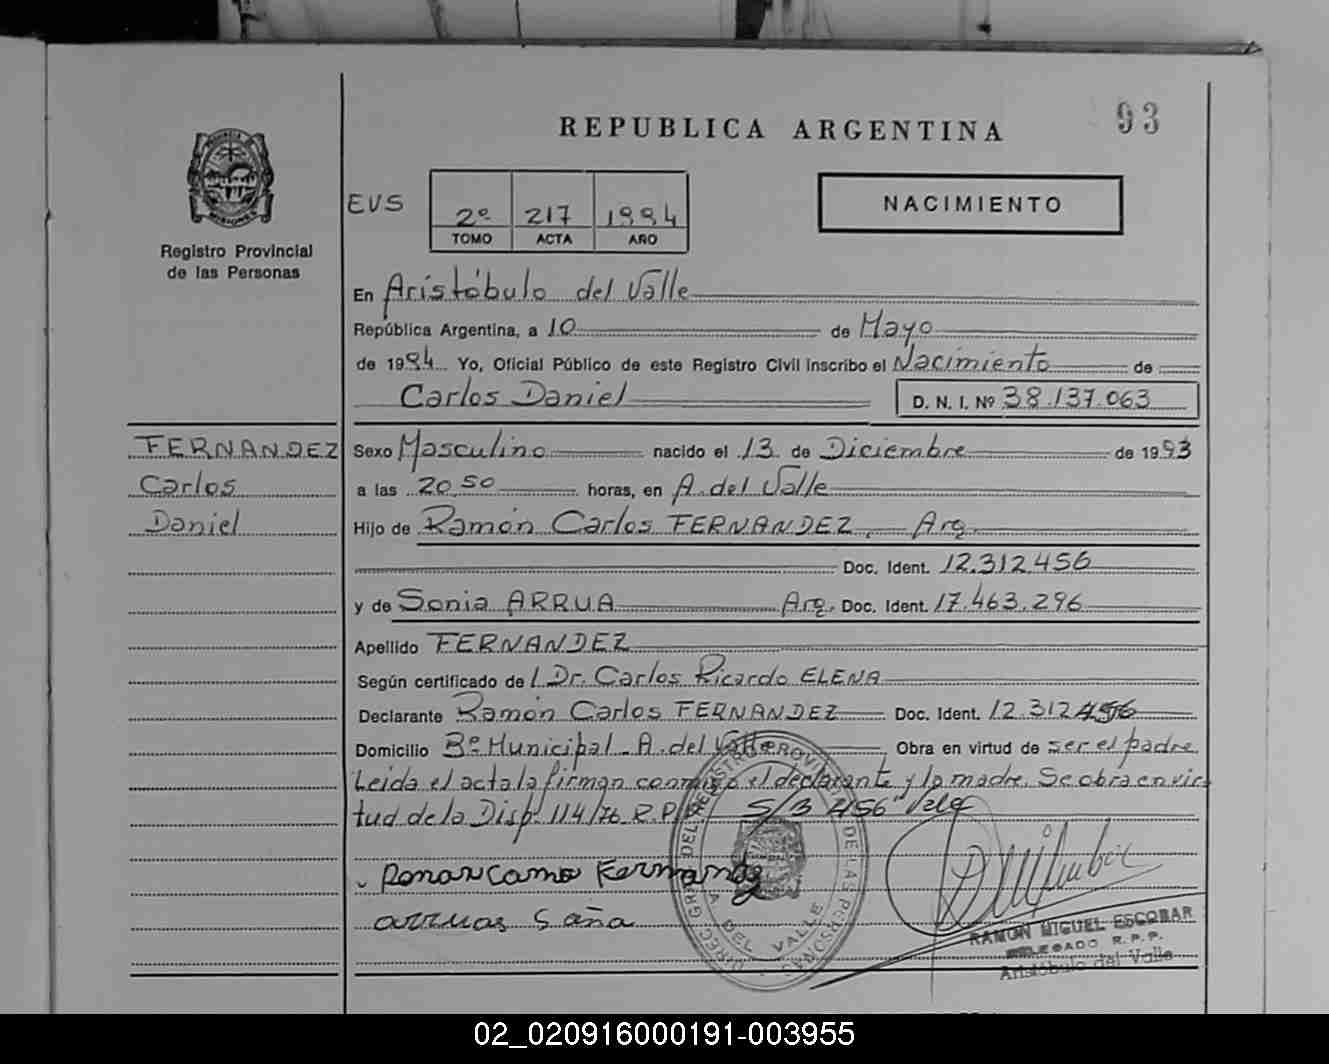 93
REPUBLICA ARGENTINA
PROVINCIA
MISIONES
Registro Provincial
de las Personas
EVS
2º 217 1994
TOMO ACTA AÑO
NACIMIENTO
En Aristóbulo del Valle
República Argentina, a 10 de Mayo
de 1994 Yo, Oficial Público de este Registro Civil inscribo el Nacimiento de
Carlos Daniel D. N. I. Nº 38.137.063
FERNANDEZ
Carlos
Daniel
Sexo Masculino nacido el 13 de Diciembre de 1993
a las 20,50 horas, en A. del Valle
Hijo de Ramón Carlos FERNANDEZ, Arg.
Doc. Ident. 12.312.456
y de Sonia ARRUA Arg. Doc. Ident. 17.463.296
Apellido FERNANDEZ
Según certificado de l Dr. Carlos Ricardo ELENA
Declarante Ramón Carlos FERNANDEZ Doc. Ident. 12.312.456
Domicilio Bº Municipal - A. del Valle Obra en virtud de ser el padre
Leida el acta la firman conmigo el declarante y la madre. Se obra en vir
tud de la Disp. 114/76 R.P.P. S/B 456 vale
Fernandez
arruas Soña
DIREC. GRAL. DEL REGISTRO PROVINCIAL DE LAS PERSONAS
A DEL VALLE
RAMON MIGUEL ESCOBAR
DELEGADO R.P.P.
Aristóbulo del Valle
02_020916000191-003955